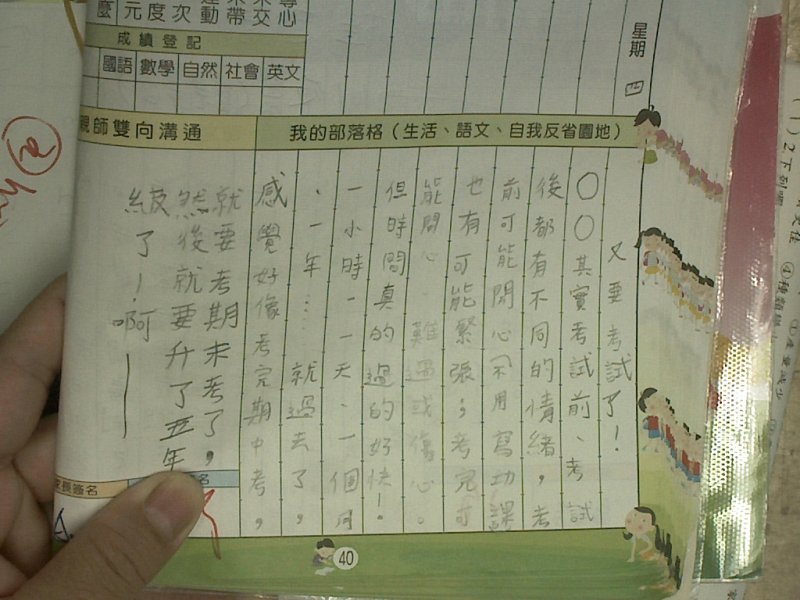 元度次
運動
帶
交
心
麼
成績登記
國語 數學 自然 社會 英文
星期 四
親師雙向溝通
我的部落格（生活、語文、自我反省園地）
又要考試了！
○○其實考試前、考試
後都有不同的情緒，考
前可能開心（不用寫功課
也有可能緊張；考完可
能開心、難過或傷心。
但時間真的過的好快！
一小時、一天、一個月
、一年…就過去了，
感覺好像考完期中考，
就要考期末考了，
然後就要升了五年
級了！啊——
名
40
下列
④種類
①產量減少